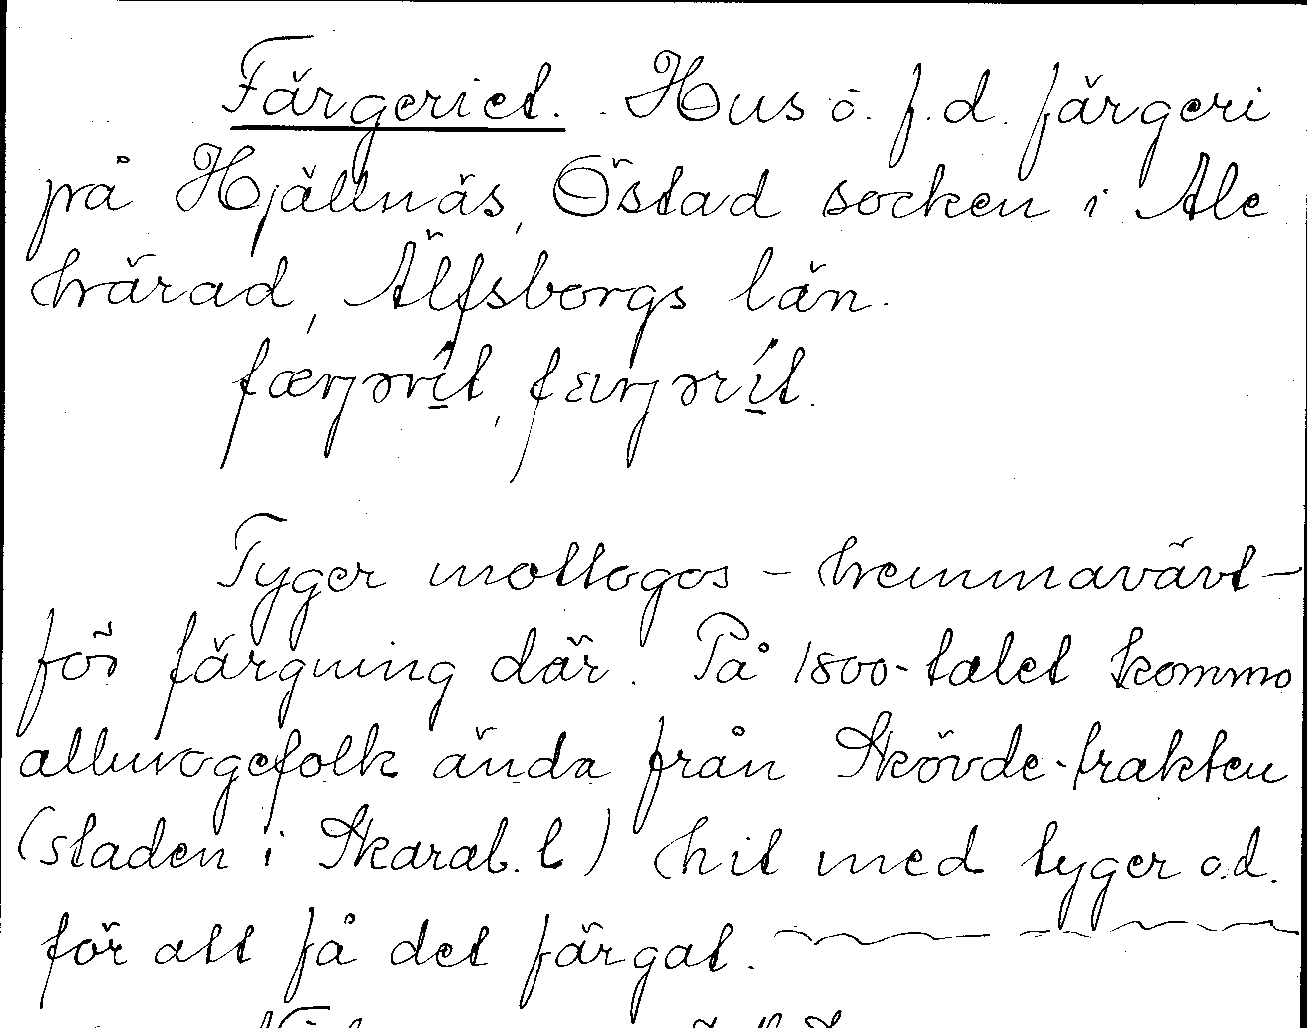 Färgeriet. Hus o. f.d. färgeri
på Hjällnäs, Östad socken i Ale
härad, Älfsborgs län.
Tyger mottogos - hemmavävt -
för färgning där. På 1800-talet kommo
allmogefolk ända från Skövde-trakten
(staden i Skarab. l) hit med tyger o.d.
för att få det färgat.